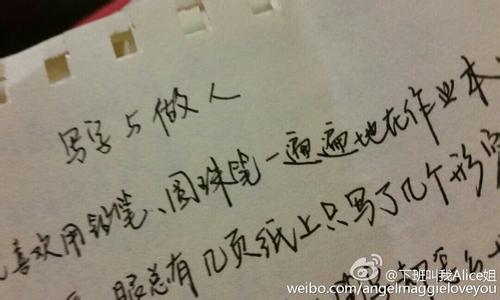 写字与做人
喜欢用铅笔、圆珠笔一遍遍地在作业本
总有几页纸上只写了几个形容
@下班叫我Alice姐
weibo.com/angelmaggieloveyou